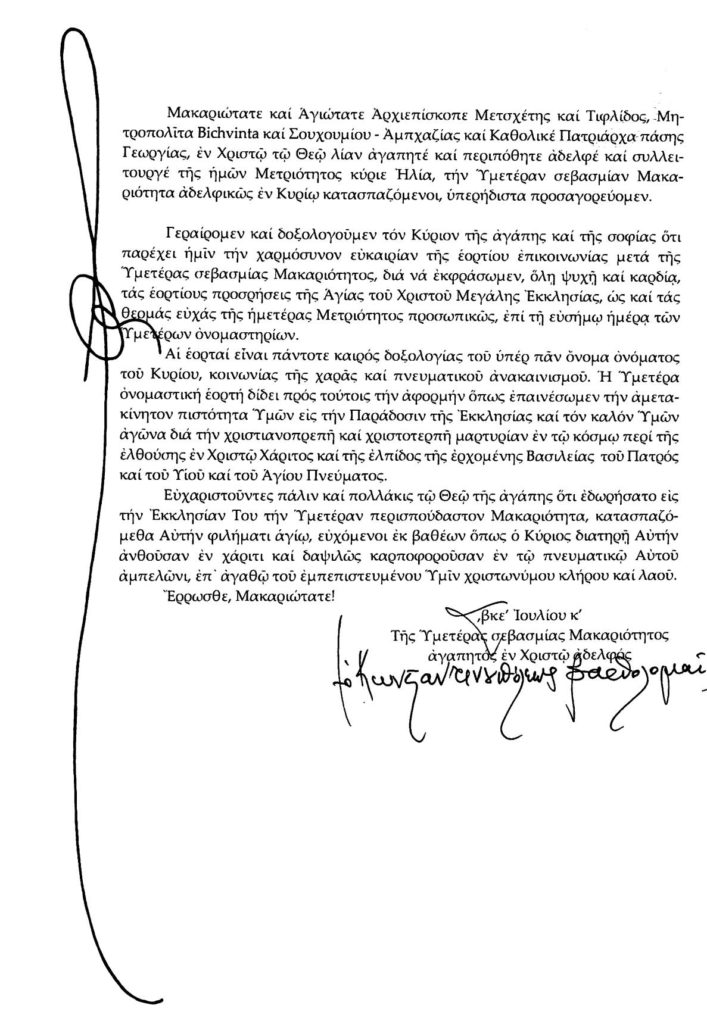 Μακαριώτατε καί Ἁγιώτατε Ἀρχιεπίσκοπε Μετσχέτης καί Τιφλίδος, Μη-
τροπολῖτα Bichvinta καί Σουχουμίου - Ἀμπχαζίας καί Καθολικέ Πατριάρχα πάσης
Γεωργίας, ἐν Χριστῷ τῷ Θεῷ λίαν ἀγαπητέ καί περιπόθητε ἀδελφέ καί συλλει-
τουργέ τῆς ἡμῶν Μετριότητος κύριε Ἠλία, τήν Ὑμετέραν σεβασμίαν Μακα-
ριότητα ἀδελφικῶς ἐν Κυρίῳ κατασπαζόμενοι, ὑπερήδιστα προσαγορεύομεν.
Γεραίρομεν καί δοξολογοῦμεν τόν Κύριον τῆς ἀγάπης καί τῆς σοφίας ὅτι
παρέχει ἡμῖν τήν χαρμόσυνον εὐκαιρίαν τῆς ἑορτίου ἐπικοινωνίας μετά τῆς
Ὑμετέρας σεβασμίας Μακαριότητος, διά νά ἐκφράσωμεν, ὅλῃ ψυχῇ καί καρδίᾳ,
τάς ἑορτίους προσρήσεις τῆς Ἁγίας τοῦ Χριστοῦ Μεγάλης Ἐκκλησίας, ὡς καί τάς
θερμάς εὐχάς τῆς ἡμετέρας Μετριότητος προσωπικῶς, ἐπί τῇ εὐσήμῳ ἡμέρᾳ τῶν
Ὑμετέρων ὀνομαστηρίων.
Αἱ ἑορταί εἶναι πάντοτε καιρός δοξολογίας τοῦ ὑπέρ πᾶν ὄνομα ὀνόματος
τοῦ Κυρίου, κοινωνίας τῆς χαρᾶς καί πνευματικοῦ ἀνακαινισμοῦ. Ἡ Ὑμετέρα
ὀνομαστική ἑορτή δίδει πρός τούτοις τήν ἀφορμήν ὅπως ἐπαινέσωμεν τήν ἀμετα-
κίνητον πιστότητα Ὑμῶν εἰς τήν Παράδοσιν τῆς Ἐκκλησίας καί τόν καλόν Ὑμῶν
ἀγῶνα διά τήν χριστιανοπρεπῆ καί χριστοτερπῆ μαρτυρίαν ἐν τῷ κόσμῳ περί τῆς
ἐλθούσης ἐν Χριστῷ Χάριτος καί τῆς ἐλπίδος τῆς ἐρχομένης Βασιλείας τοῦ Πατρός
καί τοῦ Υἱοῦ καί τοῦ Ἁγίου Πνεύματος.
Εὐχαριστοῦντες πάλιν καί πολλάκις τῷ Θεῷ τῆς ἀγάπης ὅτι ἐδωρήσατο εἰς
τήν Ἐκκλησίαν Του τήν Ὑμετέραν περισπούδαστον Μακαριότητα, κατασπαζό-
μεθα Αὐτήν φιλήματι ἁγίῳ, εὐχόμενοι ἐκ βαθέων ὅπως ὁ Κύριος διατηρῇ Αὐτήν
ἀνθοῦσαν ἐν χάριτι καί δαψιλῶς καρποφοροῦσαν ἐν τῷ πνευματικῷ Αὐτοῦ
ἀμπελῶνι, ἐπ᾽ ἀγαθῷ τοῦ ἐμπεπιστευμένου Ὑμῖν χριστωνύμου κλήρου καί λαοῦ.
Ἔρρωσθε, Μακαριώτατε!
͵βκε’ Ἰουλίου κ’
Τῆς Ὑμετέρας σεβασμίας Μακαριότητος
ἀγαπητός ἐν Χριστῷ ἀδελφός